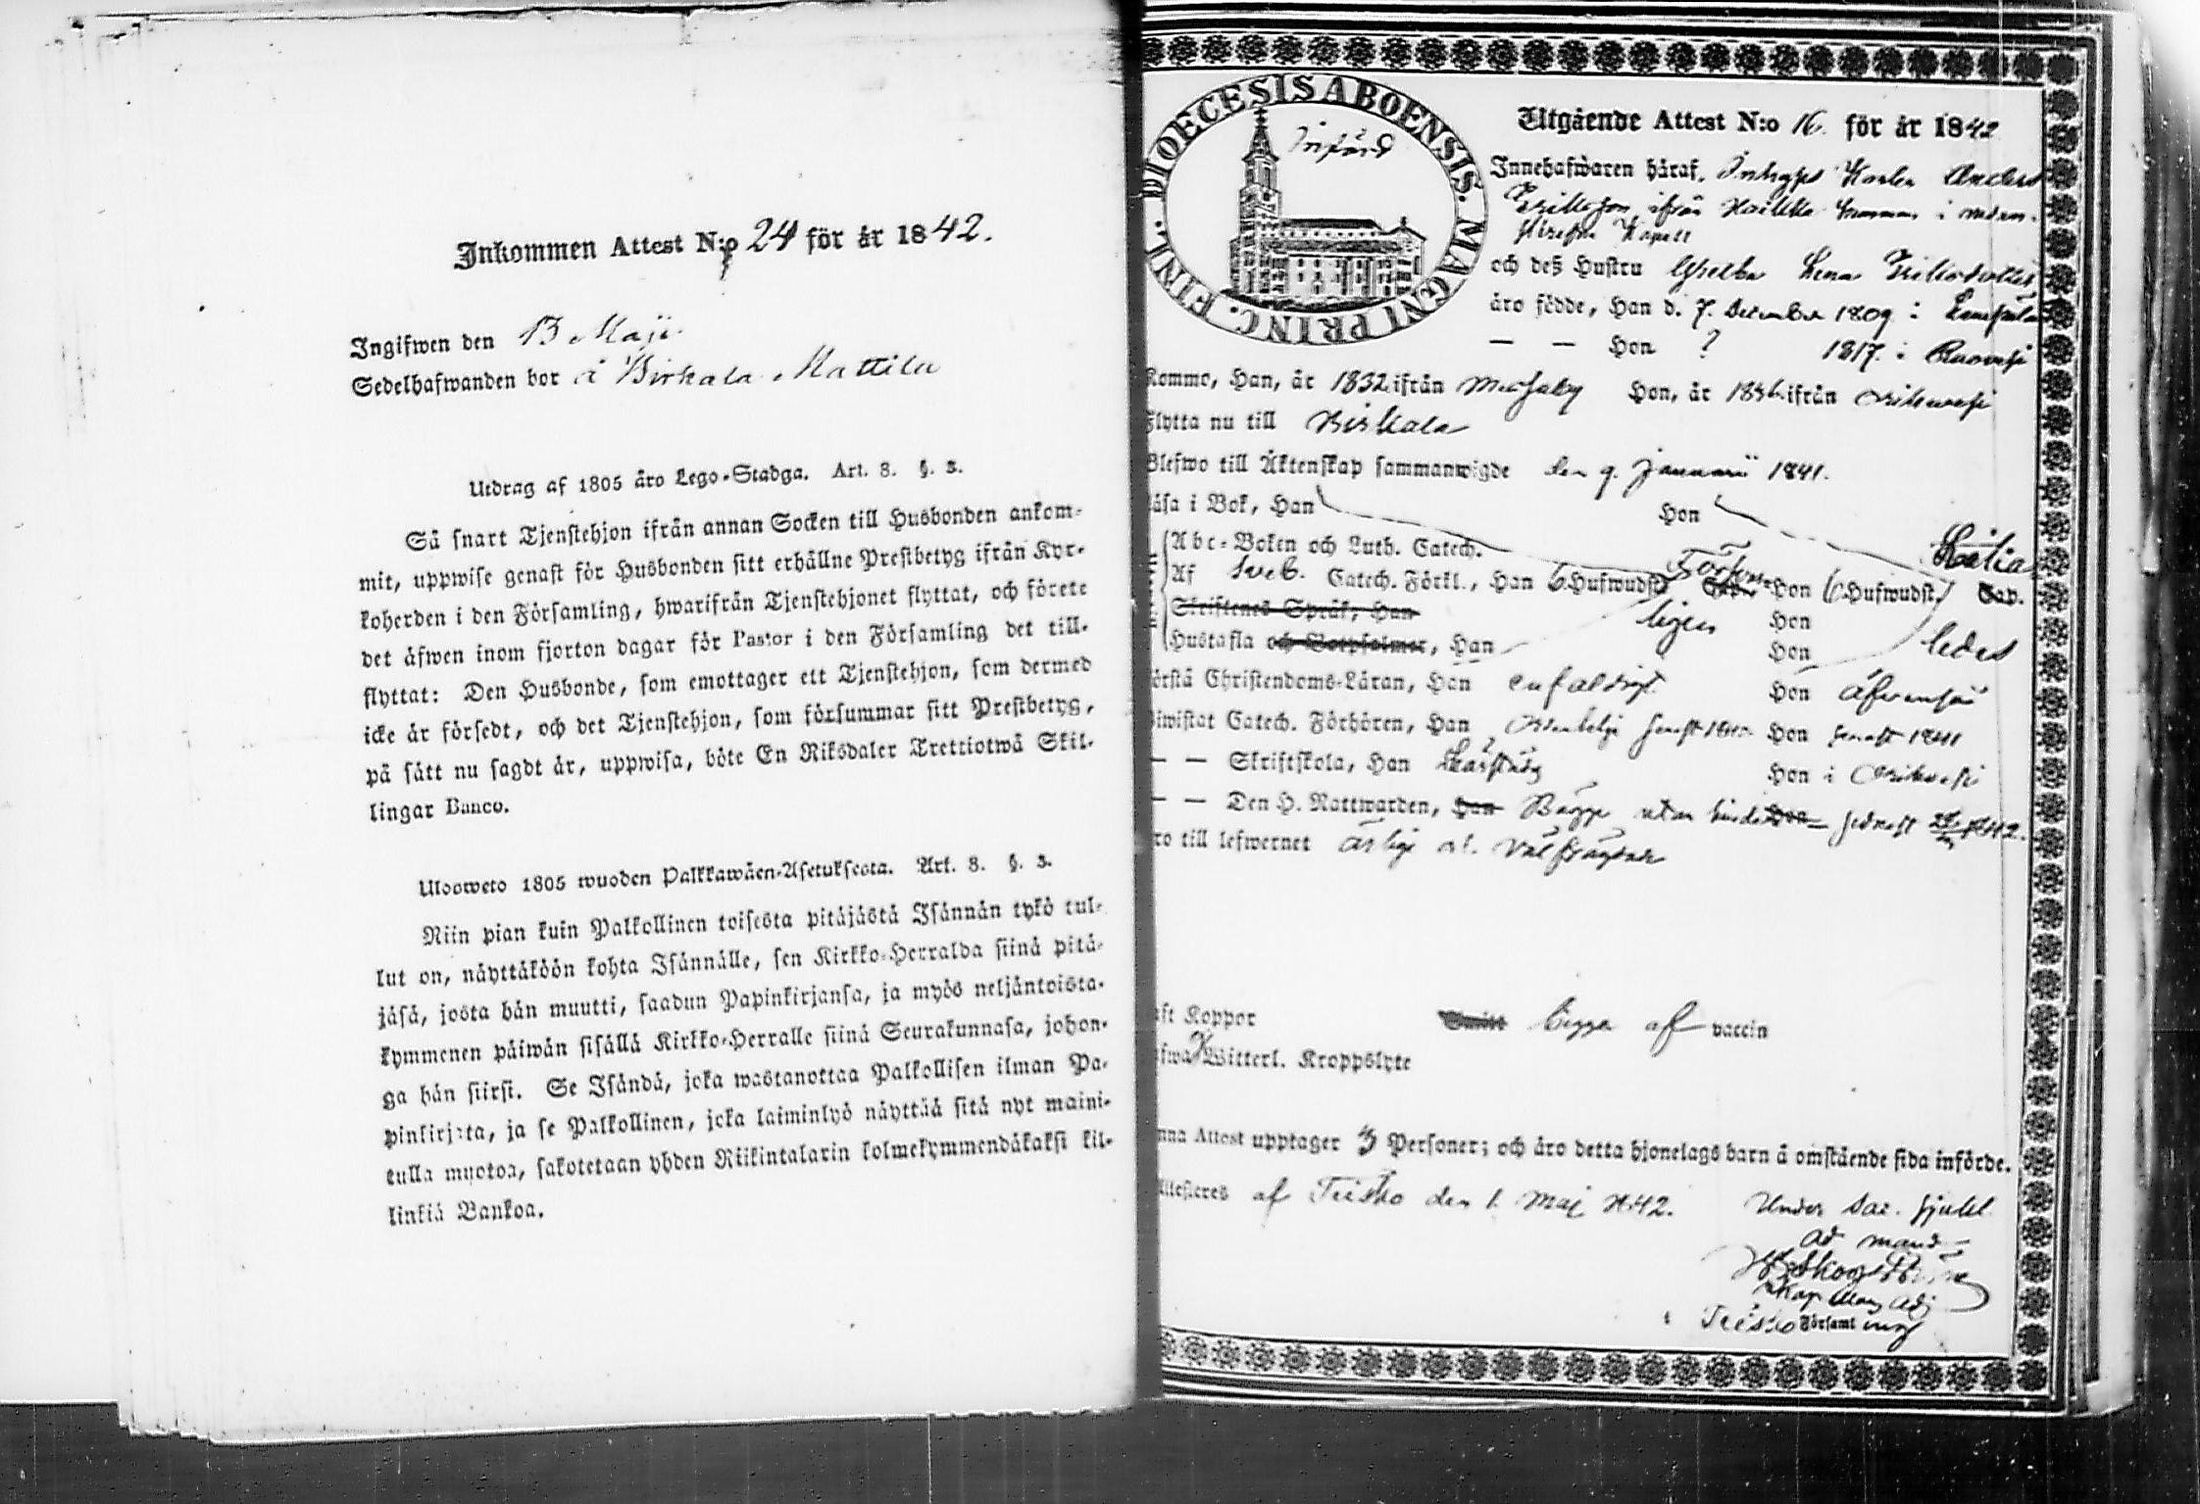 Inkommen Attest N:o 24 för år 1842.
Ingifwen den 13 Maji.
Sedelhafwanden bor i Birkala Mattila
Utdrag af 1805 års Lego-Stadga. Art. 8. §. 3.
Så snart Tjenstehjon ifrån annan Socken till Husbonden ankom-
mit, uppwise genast för Husbonden sitt erhållne Prestbetyg ifrån Kyr-
koherden i den Församling, hwarifrån Tjenstehjonet flyttat, och förete
det äfwen inom fjorton dagar för Pastor i den Församling det till-
flyttat: Den Husbonde, som emottager ett Tjenstehjon, som dermed
icke är försedt, och det Tjenstehjon, som försummar sitt Prestbetyg,
på sätt nu sagdt är, uppwisa, böte En Riksdaler Trettiotwå Skil-
lingar Banco.
Ulosweto 1805 wuoden Palkkawäen-Asetuksesta. Art. 8. §. 3.
Niin pian kuin Palkollinen toisesta pitäjästä Isännän tykö tul-
lut on, näyttäköön kohta Isännälle, sen Kirkko-Herralda siinä pitä-
jäsä, josta hän muutti, saadun Papinkirjansa, ja myös neljäntoista-
kymmenen päiwän sisällä Kirkko-Herralle siinä Seurakunnasa, johon-
ga hän siirsi. Se Isändä, joka wastanottaa Palkollisen ilman Pa-
pinkirjata, ja se Palkollinen, joka laiminlyö näyttää sitä nyt maini-
tulla muotoa, sakotetaan yhden Riikintalarin kolmekymmendäkaksi kil-
linkiä Bankoa.
DIOECESIS ABOENSIS. MAGNI PRINC. FINL.
Införd
Utgående Attest N:o 16. för år 1842
Innehafwaren häraf, Inhyses Karlen Anders
Eriksson ifrån
Kapell
och deß Hustru Greta Lena Eriksdotter
äro födde, Han d. 7. December 1809 i
— — Hon ? 1817. i Ruovesi
Kommo, Han, år 1832 ifrån Messuby Hon, år 1836 ifrån Orihwesi
Flytta nu till Birkala
Blefwo till Äktenskap sammanwigde den 9. Januarii 1841.
läsa i Bok, Han Hon
Abc-Boken och Luth. Catech.
Af Sveb. Catech. Förkl., Han 6 Hufwudst. Hon 6 Hufwudst. Cap.
Skriftenes Språk, Han ligen Hon
Hustafla och Botpsalmer, Han Hon ledes
örstå Christendoms-Läran, Han enfaldigt Hon äfvenså
iwistat Catech. Förhören, Han senast Hon senast 1841
— — Skriftskola, Han Hon i Orihwesi
— — Den H. Nattwarden, Han Bägge utan hinder Hon sednast
ro till lefwernet ärlige och välfrägdade
ft Koppor begge af vaccin
fwa Witterl. Kroppslyte
nna Attest upptager 3 Personer; och äro detta hjonelags barn å omstående sida införde.
ttesteres af Teisko den 1. Maj 1842. Under Sac. sjukl.
ad mand.
Kap. Adj
i Teisko Församling